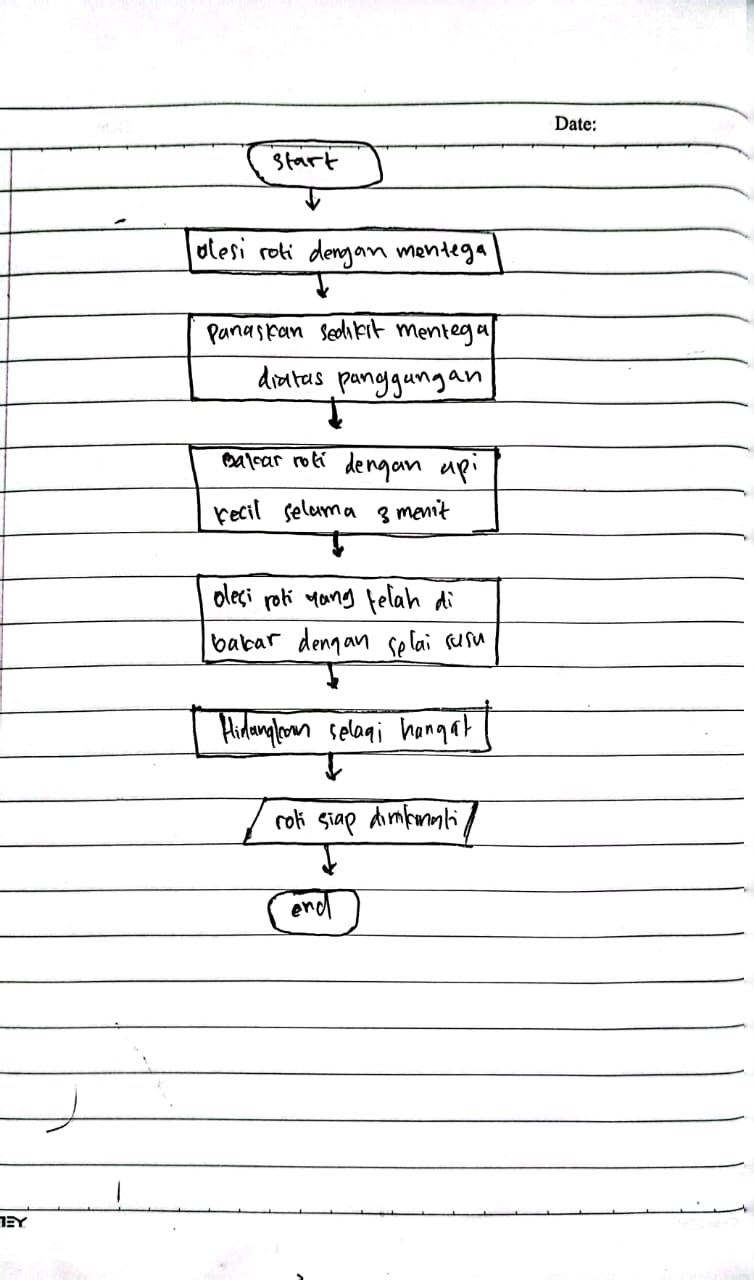 Date:
Start
olesi roti dengan mentega
Panaskan sedikit mentega
diatas panggungan
Bakar roti dengan api
kecil selama 3 menit
olesi roti yang telah di
bakar dengan selai susu
Hidangkan selagi hangat
roti siap
end